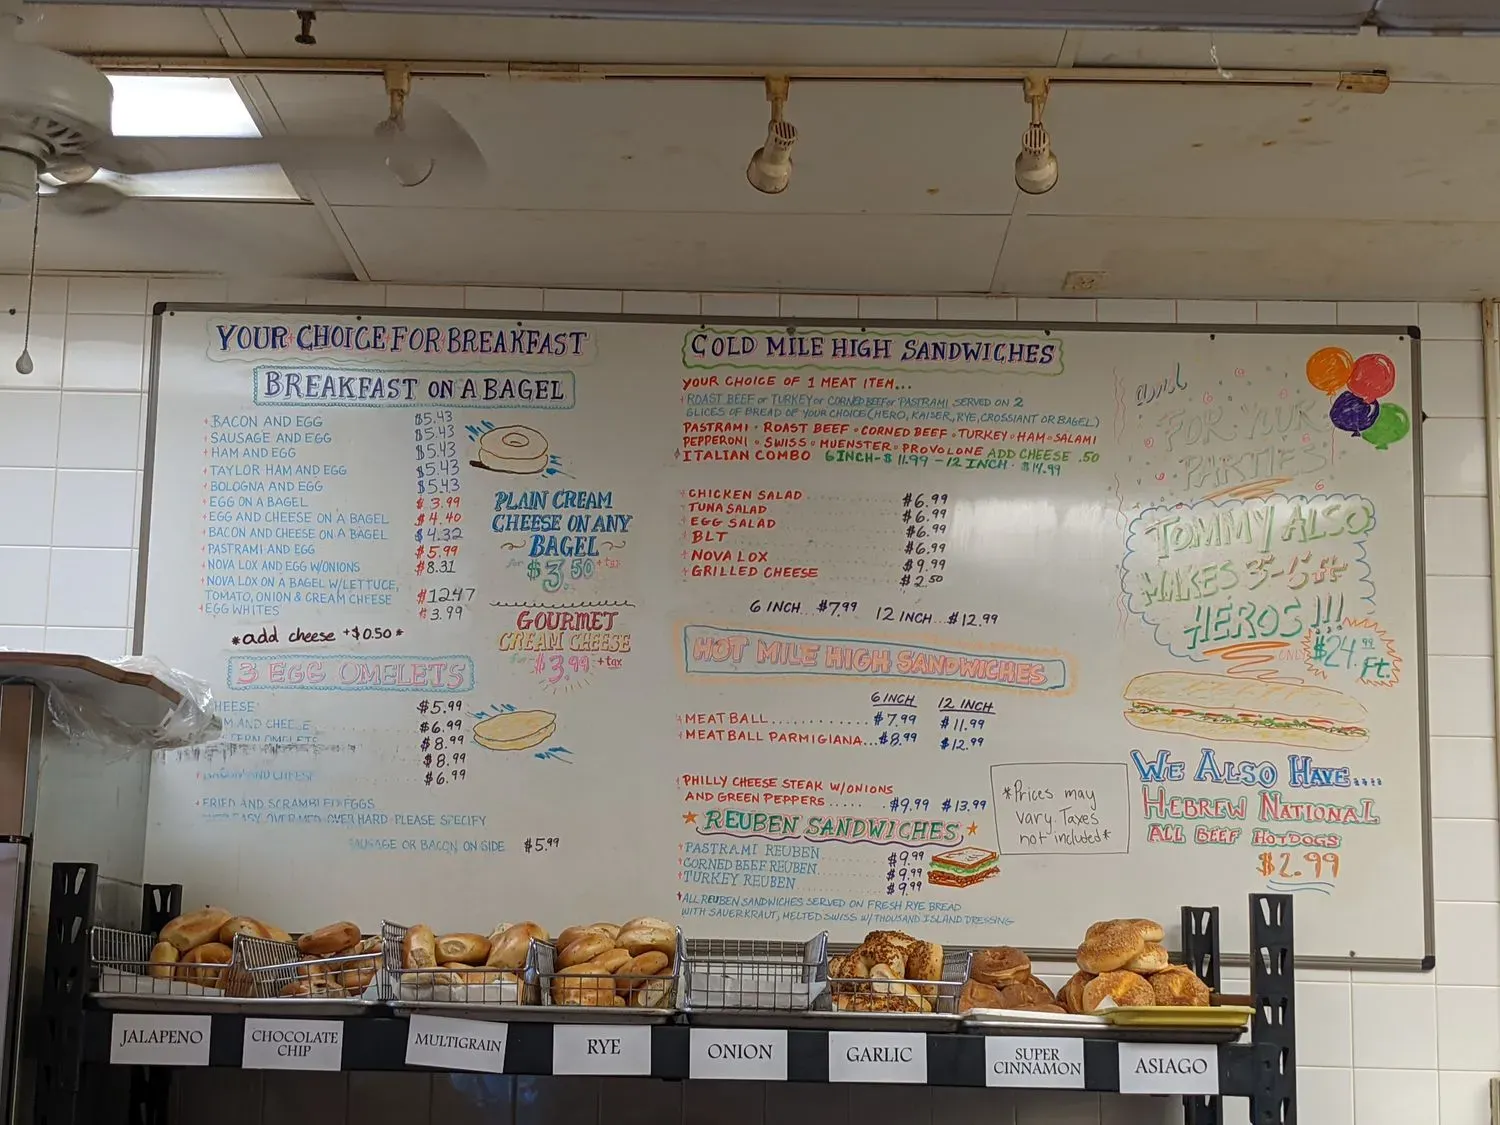 YOUR CHOICE FOR BREAKFAST
BREAKFAST ON A BAGEL
BACON AND EGG $5.43
SAUSAGE AND EGG $5.43
HAM AND EGG $5.43
TAYLOR HAM AND EGG $5.43
BOLOGNA AND EGG $5.43
EGG ON A BAGEL $3.99
EGG AND CHEESE ON A BAGEL $4.40
BACON AND CHEESE ON A BAGEL $4.32
PASTRAMI AND EGG $5.99
NOVA LOX AND EGG W/ONIONS $8.31
NOVA LOX ON A BAGEL W/LETTUCE,
TOMATO, ONION & CREAM CHEESE $12.47
EGG WHITES $3.99
*add cheese +$0.50*
PLAIN CREAM
CHEESE ON ANY
BAGEL
for $3.50 +tax
GOURMET
CREAM CHEESE
for $3.99 +tax
3 EGG OMELETS
CHEESE $5.99
AND CHEESE $6.99
OMELETS $8.99
$8.99
BACON AND CHEESE $6.99
FRIED AND SCRAMBLED EGGS
OVER EASY, OVER MED, OVER HARD PLEASE SPECIFY
SAUSAGE OR BACON ON SIDE $5.99
COLD MILE HIGH SANDWICHES
YOUR CHOICE OF 1 MEAT ITEM...
ROAST BEEF or TURKEY or CORNED BEEF or PASTRAMI SERVED ON 2
SLICES OF BREAD OF YOUR CHOICE (HERO, KAISER, RYE, CROSSIANT OR BAGEL)
PASTRAMI • ROAST BEEF • CORNED BEEF • TURKEY • HAM • SALAMI
PEPPERONI • SWISS • MUENSTER • PROVOLONE ADD CHEESE .50
ITALIAN COMBO 6 INCH - $11.99 - 12 INCH • $14.99
CHICKEN SALAD $6.99
TUNA SALAD $6.99
EGG SALAD $6.99
BLT $6.99
NOVA LOX $9.99
GRILLED CHEESE $2.50
6 INCH...$7.99 12 INCH...$12.99
HOT MILE HIGH SANDWICHES
6 INCH 12 INCH
MEATBALL............ $7.99 $11.99
MEATBALL PARMIGIANA...$8.99 $12.99
PHILLY CHEESE STEAK W/ONIONS
AND GREEN PEPPERS ..... $9.99 $13.99
REUBEN SANDWICHES
PASTRAMI REUBEN $9.99
CORNED BEEF REUBEN $9.99
TURKEY REUBEN $9.99
ALL REUBEN SANDWICHES SERVED ON FRESH RYE BREAD
WITH SAUERKRAUT, MELTED SWISS W/ THOUSAND ISLAND DRESSING
*Prices may
vary. Taxes
not included*
and
FOR YOUR
PARTIES
TOMMY ALSO
MAKES 3-5 ft
HEROS !!!
ONLY $24.99 Ft.
WE ALSO HAVE....
HEBREW NATIONAL
ALL BEEF HOTDOGS
$2.99
JALAPENO
CHOCOLATE
CHIP
MULTIGRAIN
RYE
ONION
GARLIC
SUPER
CINNAMON
ASIAGO